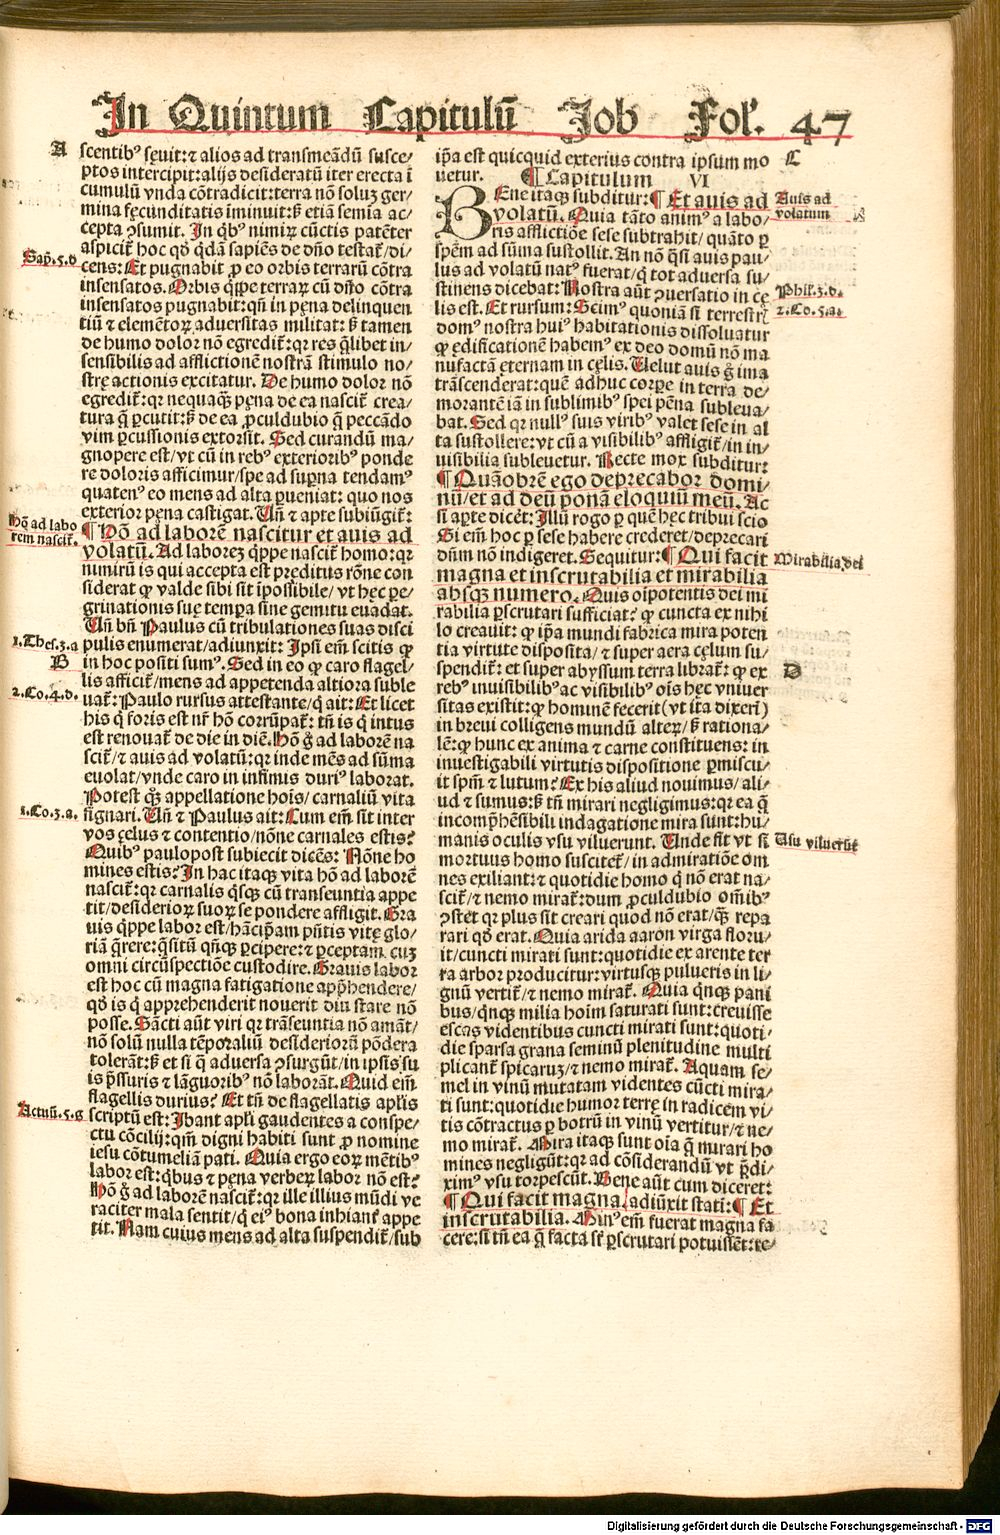 In Quintum Capitulū Job Fol'. 47
A
scentibꝰ sęuit: ⁊ alios ad transmeādū susce/
ptos intercipit: alijs desideratū iter erecta ī
cumulū vnda cōtradicit: terra nō soluꝫ ger/
mina fęcunditatis iminuit: ß etiā semia ac/
cepta ꝯsumit. In q̄bꝰ nimiꝝ cūctis patēter
aspicit̃ hoc qđ q̄dā sapiēs de dn̄o testat̃/di/
Sap̄. 5. d
cens: Et pugnabit ꝓ eo orbis terrarū cōtra
insensatos. Orbis q̄ppe terraꝝ cū dīto cōtra
insensatos pugnabit: qn̄ in pęna delinquen
tiū ⁊ elemētoꝝ aduersitas militat: ß tamen
de humo dolor nō egredit̃: qꝛ res q̄libet in/
sensibilis ad afflictionē nostrā stimulo no/
strę actionis excitatur. De humo dolor nō
egredit̃: qꝛ nequaq̄ꝫ pęna de ea nascit̃ crea/
tura q̄ ꝑcutit: ß de ea ꝓculdubio q̄ peccādo
vim ꝑcussionis extorsit. Sed curandū ma/
gnopere est/vt cū in rebꝰ exterioribꝰ ponde
re doloris afficimur/spe ad suꝑna tendamꝰ
quatenꝰ eo mens ad alta ꝑueniat: quo nos
exterior pęna castigat. Un̄ ⁊ apte subiūgit̃:
Hō ad labo
rem nascit̃.
¶ Hō ad laborē nascitur et auis ad
volatū. Ad laboreꝫ q̄ppe nascit̃ homo: qꝛ
nimirū is qui accepta est pręditus rōne con
siderat ꝙ valde sibi sit īpossibile/ vt hęc ꝑe/
grinationis suę temꝑa sine gemitu euadat.
Un̄ bn̄ Paulus cū tribulationes suas disci
1. Thes. 3. a
pulis enumerat/adiunxit: Ipsi em̄ scitis ꝙ
B
in hoc positi sumꝰ. Sed in eo ꝙ caro flagel/
lis afficit̃/mens ad appetenda altiora suble
2. Co. 4. d.
uat̃: Paulo rursus attestante/q̇ ait: Et licet
his q̇ foris est nr̄ hō corrūpat̃: tn̄ is q̇ intus
est renouat̃ de die in diē. Hō ḡ ad laborē na
scit̃/ ⁊ auis ad volatū: qꝛ inde mēs ad sūma
euolat/vnde caro in infimis duriꝰ laborat.
Potest q̄ꝫ appellatione hoīs/ carnaliū vita
1. Co. 3. a.
signari. Un̄ ⁊ Paulus ait: Cum em̄ sit inter
vos çelus ⁊ contentio/nōne carnales estis?
Quibꝰ paulopost subiecit dicēs: Nōne ho
mines estis? In hac itaqꝫ vita hō ad laborē
nascit̃: qꝛ carnalis q̄sqꝫ cū transeuntia appe
tit/desiderioꝝ suoꝝ se pondere affligit. Gra
uis q̄ppe labor est/hāc ip̄am pn̄tis vitę glo/
riā q̄rere: q̄sitū qn̄qꝫ ꝑcipere: ⁊ ꝑceptam cuꝫ
omni circūspectiōe custodire. Grauis labor
est hoc cū magna fatigatione app̄hendere/
qđ is q̇ apprehenderit nouerit diu stare nō
posse. Sācti aūt viri qꝛ trāseuntia nō amāt/
nō solū nulla tēporaliū desiderioꝝ pōdera
tolerāt: ß et si q̄ aduersa ꝯsurgūt/in ipsis su
is p̄ssuris ⁊ lāguoribꝰ nō laborāt. Quid em̄
flagellis durius? Et tn̄ de flagellatis apl̄is
Actuū. 5. g
scriptū est: Ibant apl̄i gaudentes a conspe/
ctu cōcilij: qm̄ digni habiti sunt ꝓ nomine
iesu cōtumeliā pati. Quia ergo eoꝝ mētibꝰ
labor est: q̄bus ⁊ pęna verbeꝝ labor nō est?
Hō ḡ ad laborē nascit̃: qꝛ ille illius mūdi ve
raciter mala sentit/q̇ eiꝰ bona inhiant̃ appe
tit. Nam cuius mens ad alta suspendit̃/sub
ip̄a est quicquid exterius contra ipsum mo
C
uetur. ¶ Capitulum VI
BEne itaqꝫ subditur: ¶ Et auis ad
Auis ad
volatum
volatū. Quia tāto animꝰ a labo/
ris afflictiōe sese subtrahit/ quāto ꝑ
spēm ad sūma sustollit. An nō q̄si auis pau/
lus ad volatū natꝰ fuerat/q̇ tot aduersa su/
stinens dicebat: Nostra aūt ꝯuersatio in cę
Phil̄. 3. d.
lis est. Et rursum: Scimꝰ quoniā si terrestrꝭ
2. Co. 5. a.
domꝰ nostra huiꝰ habitationis dissoluatur
ꝙ ędificationē habemꝰ ex deo domū nō ma
nufactā ęternam in cęlis. Uelut auis ḡ ima
trāscenderat: quē adhuc corꝑe in terra de/
morantē iā in sublimibꝰ spei pēna subleua/
bat. Sed qꝛ nullꝰ suis viribꝰ valet sese in al
ta sustollere: vt cū a visibilibꝰ affligit̃/in in/
uisibilia subleuetur. Recte mox subditur:
¶ Quāobrē ego deprecabor domi/
nū/et ad deū ponā eloquiū meū. Ac
si aꝑte dicēt: Illū rogo ꝑ quē hęc tribui scio
Si em̄ hoc ꝑ sese habere crederet/deprecari
dn̄m nō indigeret. Sequitur: ¶ Qui facit
Mirabilia dei
magna et inscrutabilia et mirabilia
absqꝫ numero. Quis oīpotentis dei mi
rabilia ꝑscrutari sufficiat? ꝙ cuncta ex nihi
lo creauit: ꝙ ip̄a mundi fabrica mira poten
tia virtute disposita/ ⁊ super aera cęlum su/
spendit̃: et super abyssum terra librat̃: ꝙ ex
D
rebꝰ inuisibilibꝰ ac visibilibꝰ oīs hęc vniuer
sitas existit: ꝙ hominē fecerit (vt ita dixerī)
in breui colligens mundū alteꝝ/ß rationa/
lē: ꝙ hunc ex anima ⁊ carne constituens: in
inuestigabili virtutis dispositione ꝑmiscu/
it spm̄ ⁊ lutum? Ex his aliud nouimus/ ali/
ud ⁊ sumus: ß tn̄ mirari negligimus: qꝛ ea q̄
incomp̄hēsibili indagatione mira sunt: hu/
manis oculis vsu viluerunt. Unde fit vt si
Usu viluerūt
mortuus homo suscitet̃/ in admiratiōe om
nes exiliant: ⁊ quotidie homo q̇ nō erat na/
scit̃/ ⁊ nemo mirat̃: dum ꝓculdubio om̄ibꝰ
ꝯstet qꝛ plus sit creari quod nō erat/q̄ꝫ repa
rari qđ erat. Quia arida aaron virga floru/
it/cuncti mirati sunt: quotidie ex arente ter
ra arbor producitur: virtusqꝫ pulueris in li/
gnū vertit̃/ ⁊ nemo mirat̃. Quia q̄nqꝫ pani
bus/q̄nqꝫ milia hoīm saturati sunt: creuisse
escas videntibus cuncti mirati sunt: quoti/
die sparsa grana seminū plenitudine multi
plicant̃ spicaruꝫ/ ⁊ nemo mirat̃. Aquam se/
mel in vinū mutatam videntes cūcti mira/
ti sunt: quotidie humor terrę in radicem vi/
tis cōtractus ꝑ botrū in vinū vertitur/ ⁊ ne/
mo mirat̃. Mira itaqꝫ sunt oīa q̄ mirari ho
mines negligūt: qꝛ ad cōsiderandū vt p̄di/
ximꝰ vsu torpescūt. Bene aūt cum diceret:
¶ Qui facit magna/adiūxit stati: ¶ Et
inscrutabilia. Minꝰ em̄ fuerat magna fa
cere: si tn̄ ea q̄ facta st̄ ꝑscrutari potuissēt: re/
Digitalisierung gefördert durch die Deutsche Forschungsgemeinschaft - DFG